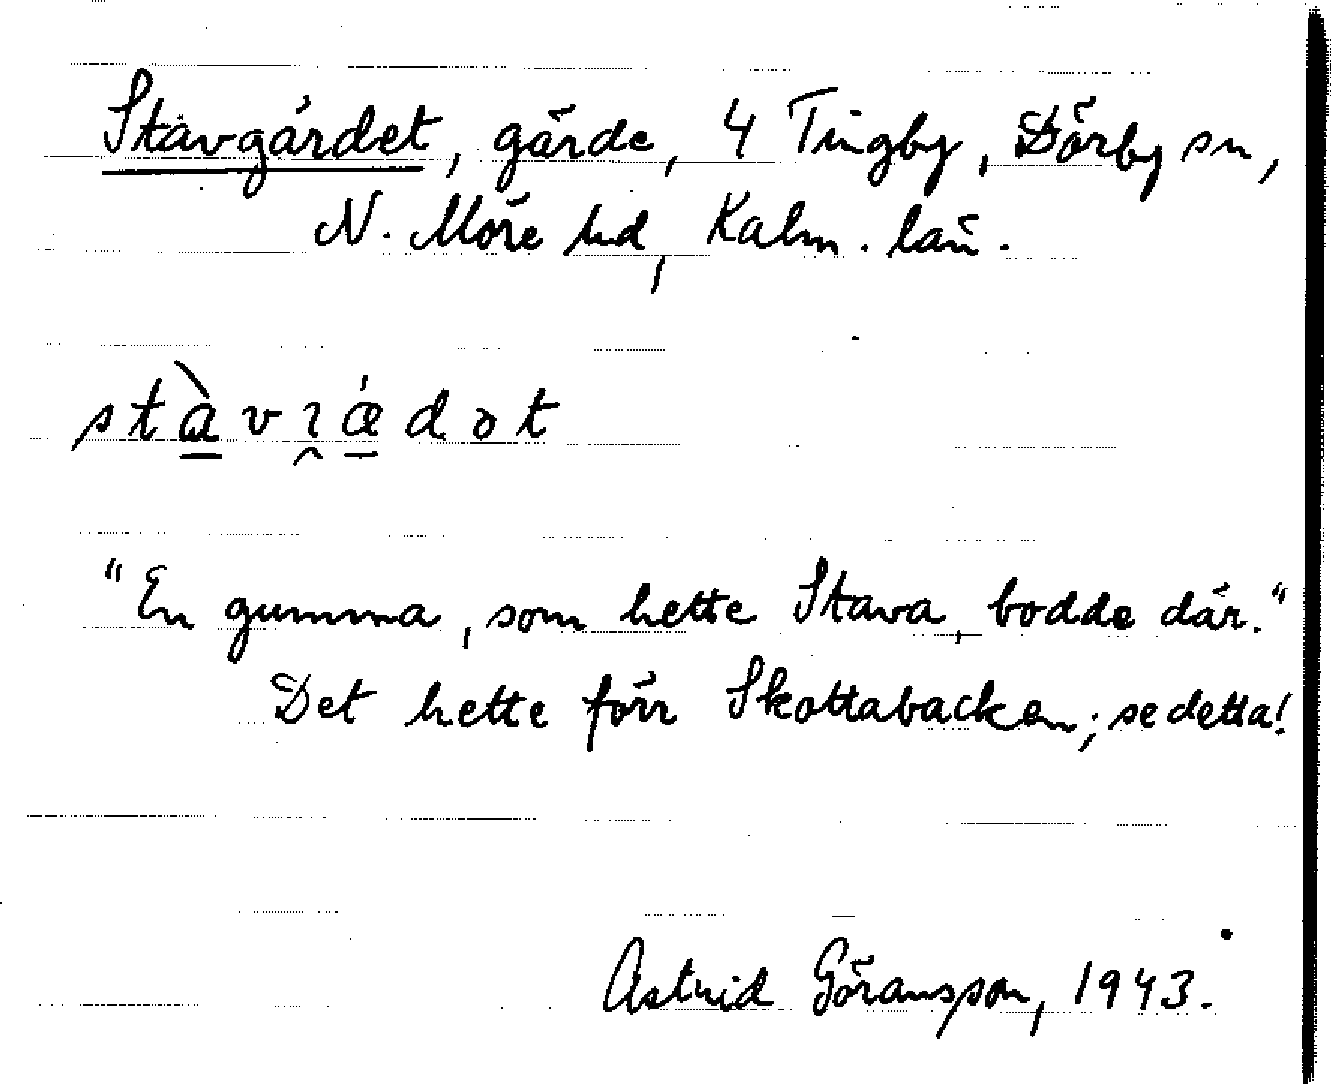 Stavgärdet, gärde, 4 Tingby, Dörby sn,
N. Möre hd, Kalm. län.
"En gumma, som hette Stava, bodde där."
Det hette förr Skottabacken; se detta!
Astrid Göransson, 1943.